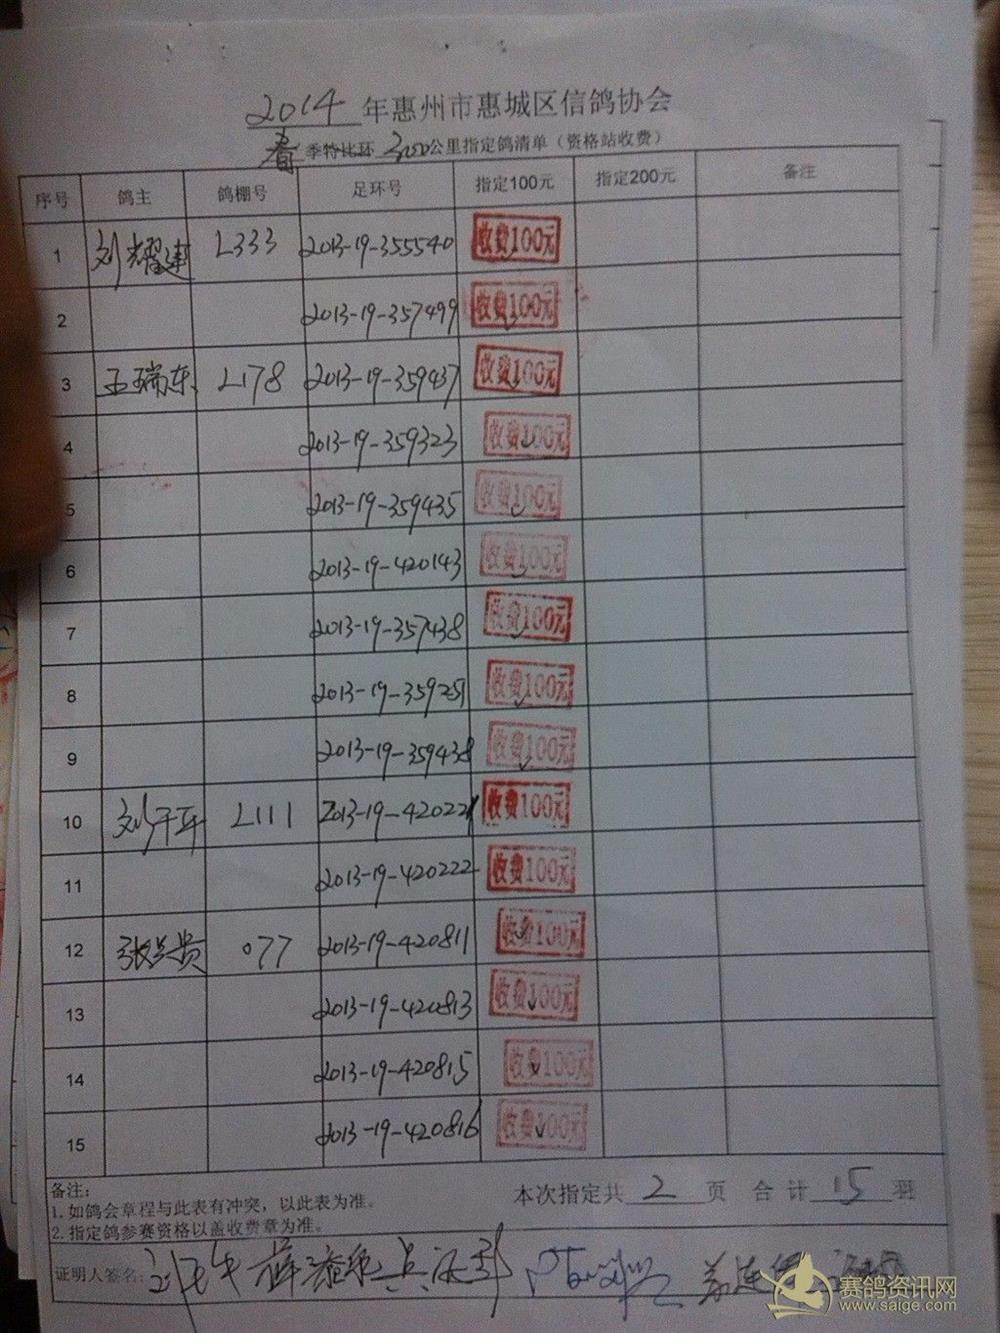 2014 年惠州市惠城区信鸽协会
春 季特比环 300公里指定鸽清单（资格站收费）
序号 鸽主 鸽棚号 足环号 指定100元 指定200元 备注
1 刘耀建 L333 2013-19-355540 收费100元
2 2013-19-357499 收费100元
3 王瑞东 L178 2013-19-359437 收费100元
4 2013-19-359323 收费100元
5 2013-19-359435 收费100元
6 2013-19-420143 收费100元
7 2013-19-357438 收费100元
8 2013-19-359251 收费100元
9 2013-19-359438 收费100元
10 L111 2013-19-420221 收费100元
11 2013-19-420222 收费100元
12 张兴贵 077 2013-19-420811 收费100元
13 2013-19-420813 收费100元
14 2013-19-420815 收费100元
15 2013-19-420816 收费100元
备注：
1.如鸽会章程与此表有冲突，以此表为准。
2.指定鸽参赛资格以盖收费章为准。
本次指定共 2 页 合计 15 羽
证明人签名：
赛鸽资讯网
www.saige.com